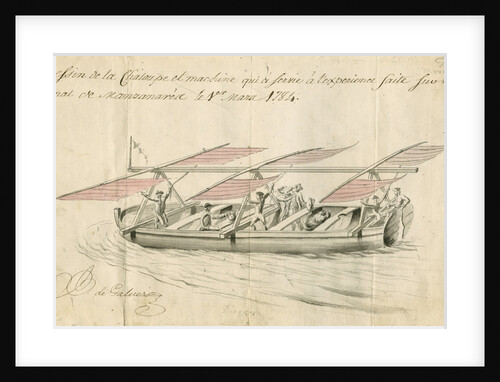 essin de la Chaloupe et machine qui à servie à l'experience faite sur
nal de Manzanarés le 1er Mars 1784.
de Galvez